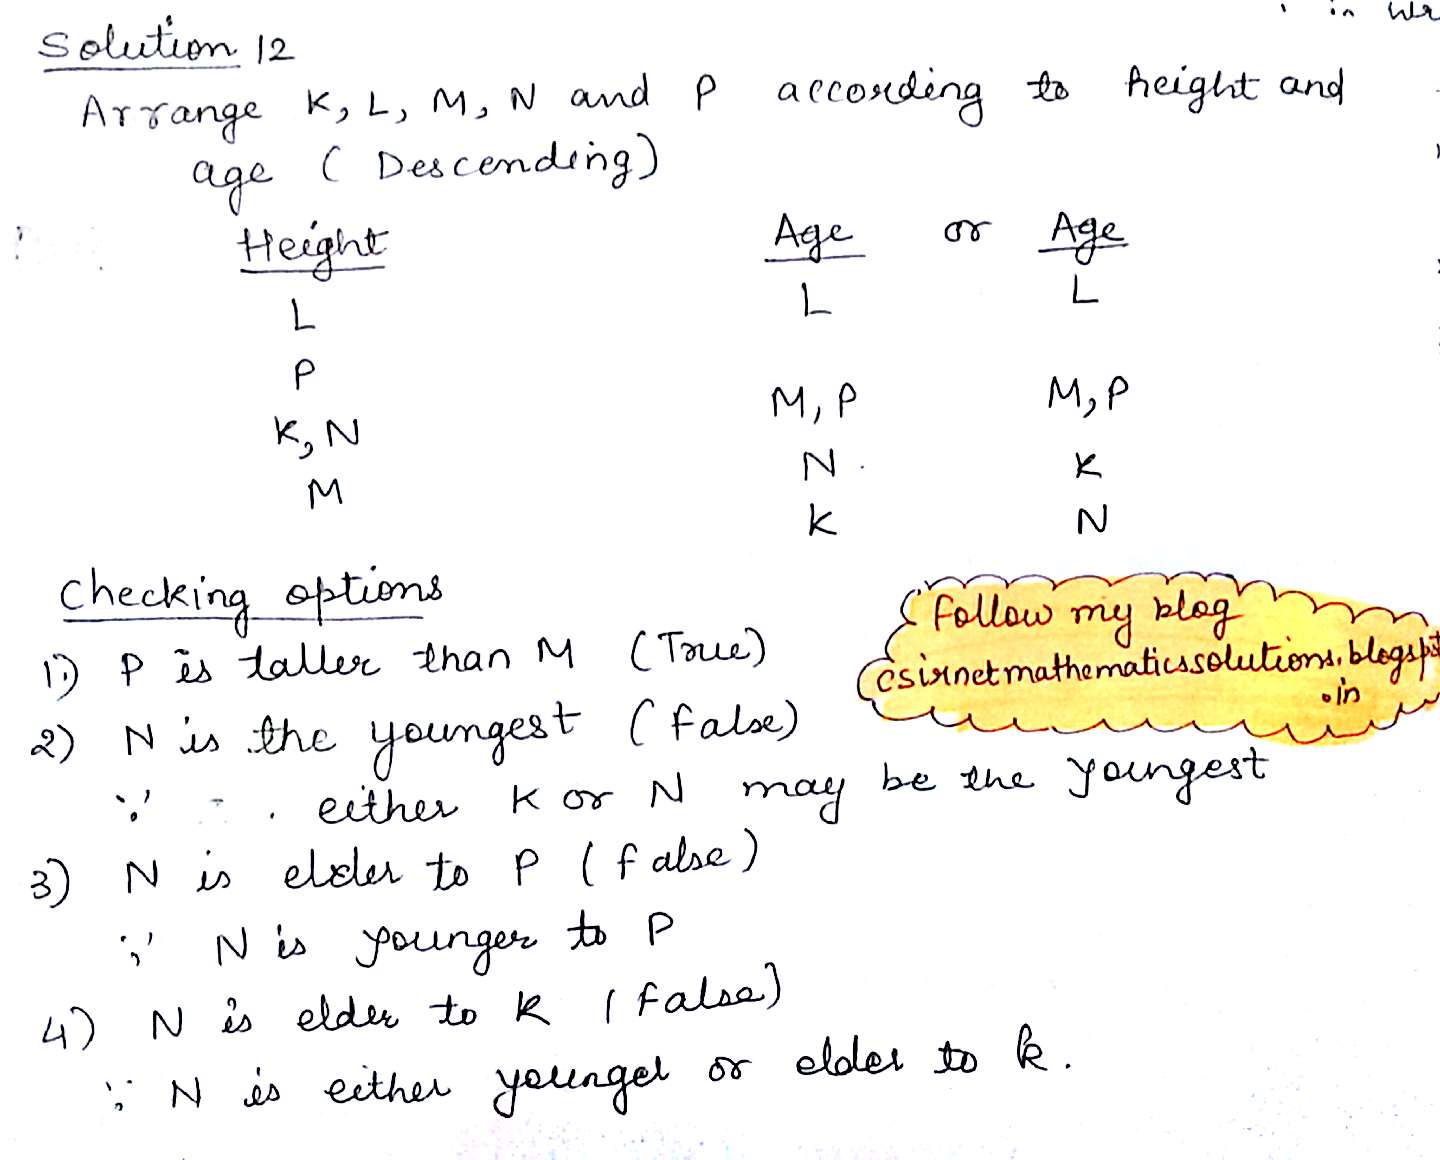 in wr
Solution 12
Arrange K, L, M, N and P according to height and
age ( Descending)
Height
Age or Age
L
L L
P
M, P M, P
K, N
N K
M
K N
Checking options
1) P is taller than M (True)
2) N is the youngest (false)
∵ either K or N may be the youngest
3) N is elder to P (false)
∵ N is younger to P
4) N is elder to K (False)
∵ N is either younger or elder to k.
follow my blog
csirnetmathematicssolutions.blogspot
.in